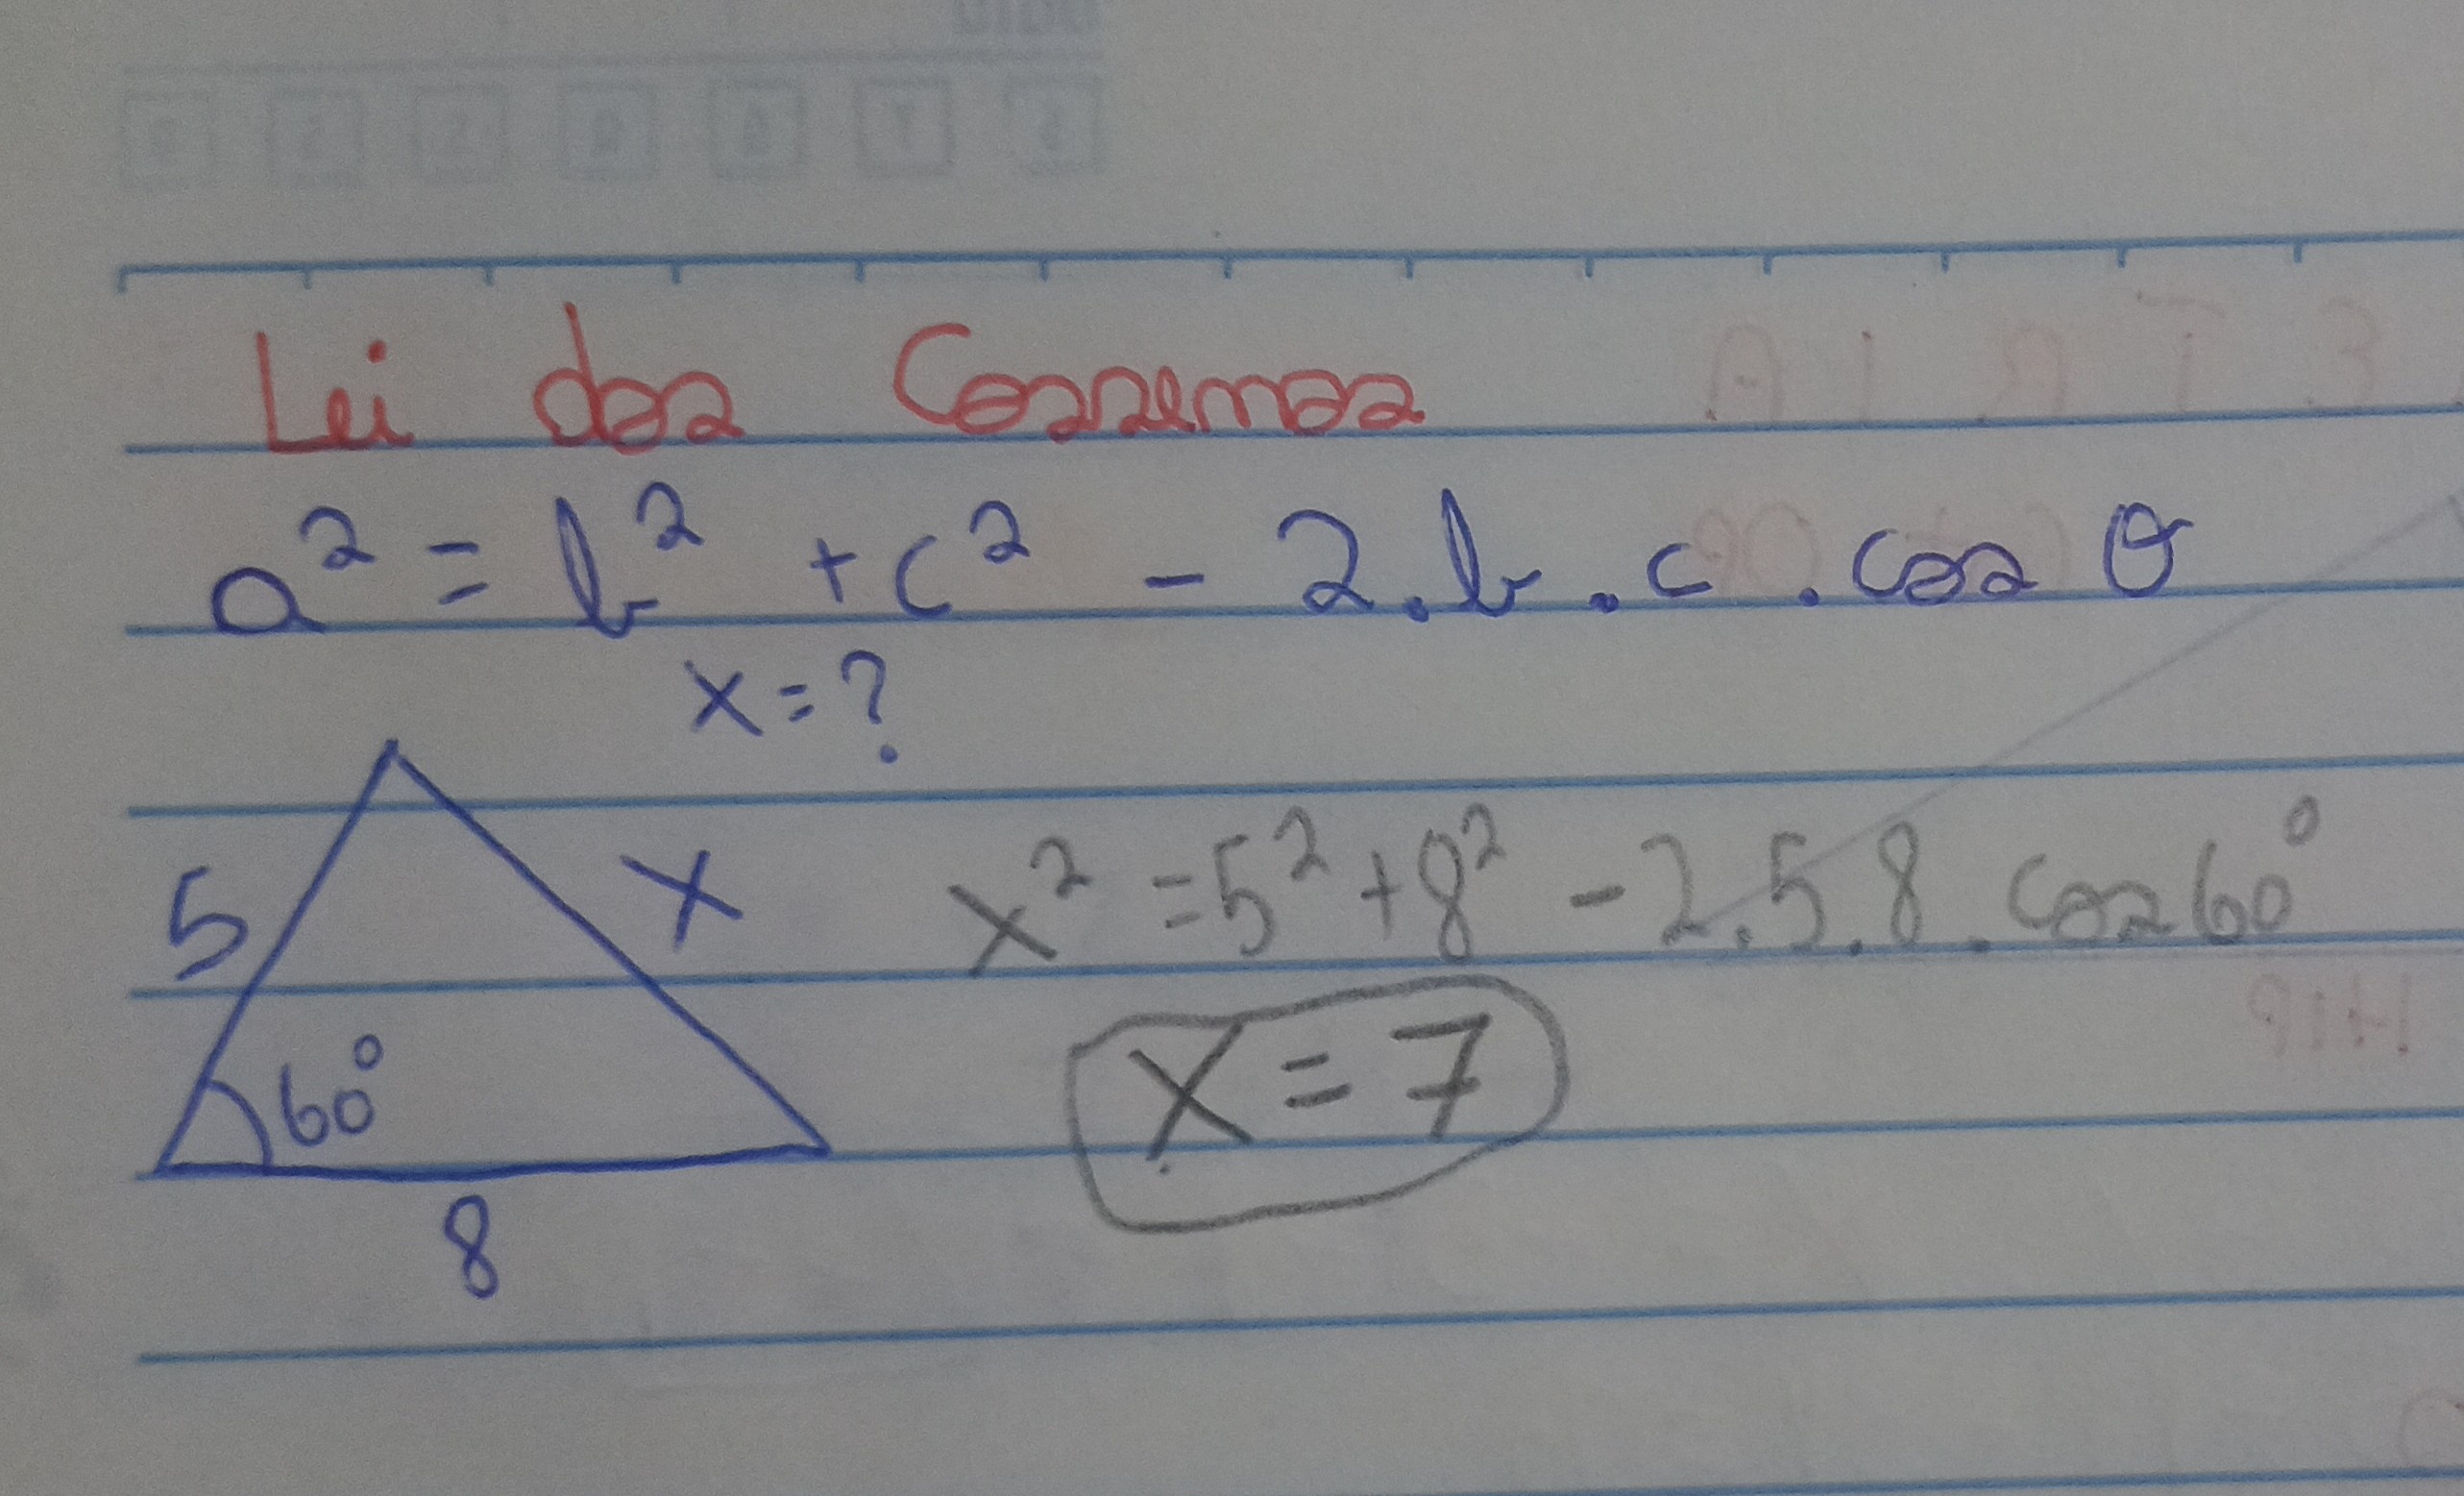 Lei dos Cossenos
a² = b² + c² - 2.b.c.cos θ
x = ?
5
x
x² = 5² + 8² - 2.5.8.cos 60°
60°
x = 7
8